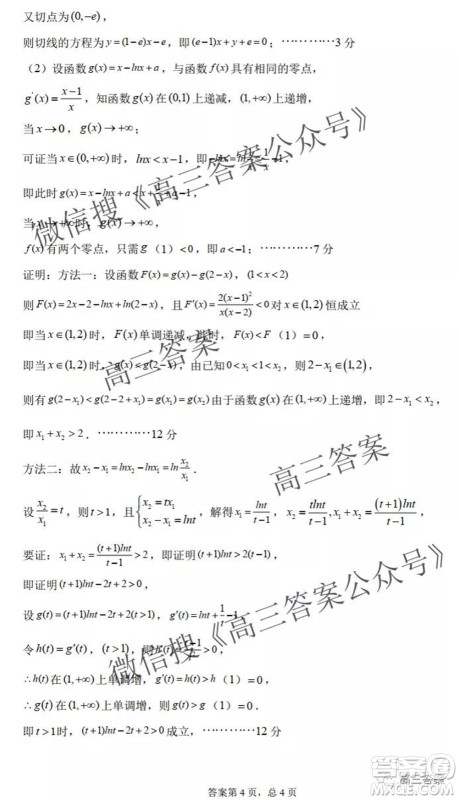 又切点为(0,-e)，
则切线的方程为y=(1-e)x-e，即(e-1)x+y+e=0；…………3 分
（2）设函数g(x)=x-lnx+a，与函数f(x)具有相同的零点，
g'(x)=\frac{x-1}{x}，知函数g(x)在(0,1)上递减，(1,+∞)上递增，
当x→0，g(x)→+∞；
可证当x∈(0,+∞)时，lnx<x-1，即
即此时g(x)=x-lnx+a
当x→+∞时，g(x)→+∞，
f(x)有两个零点，只需g（1）<0，即a<-1；…………7 分
证明：方法一：设函数F(x)=g(x)-g(2-x)，(1<x<2)
则F(x)=2x-2-lnx+ln(2-x)，且F'(x)=\frac{2(x-1)^2}{x(x-2)}<0对x∈(1,2)恒成立
即当x∈(1,2)时，F(x)单调递减，此时，F(x)<F（1）=0，
即当x∈(1,2)时，g(x)<g(2-x)，由已知0<x₁<1<x₂，则2-x₁∈(1,2)，
则有g(2-x₁)<g(2-2+x₁)=g(x₁)=g(x₂)由于函数g(x)在(1,+∞)上递增，即2-x₁<x₂，
即x₁+x₂>2．…………12 分
方法二：故x₂-x₁=lnx₂-lnx₁=ln\frac{x₂}{x₁}．
设\frac{x₂}{x₁}=t，则t>1，且{x₂=tx₁ x₂-x₁=lnt，解得x₁=\frac{lnt}{t-1}，x₂=\frac{tlnt}{t-1},x₁+x₂=\frac{(t+1)lnt}{t-1}，
要证：x₁+x₂=\frac{(t+1)lnt}{t-1}>2，即证明(t+1)lnt>2(t-1)，
即证明(t+1)lnt-2t+2>0，
设g(t)=(t+1)lnt-2t+2(t>1)，g'(t)=lnt+\frac{1}{t}-1，
令h(t)=g'(t)，(t>1)，则
∴h(t)在(1,+∞)上单调增，g'(t)=h(t)>h（1）=0，
∴g(t)在(1,+∞)上单调增，则g(t)>g（1）=0．
即t>1时，(t+1)lnt-2t+2>0成立，…………12 分
答案第 4 页，总 4 页
微信搜《高三答案公众号》
高三答案
高三答案
微信搜《高三答案公众号》
高三答案